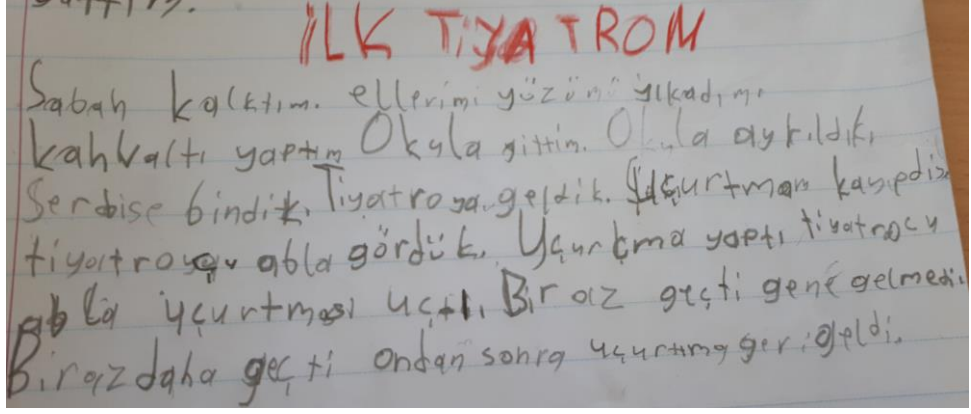 İLK TiYATROM
Sabah kalktım. ellerimi yüzümü yıkadım.
kahvaltı yaptım Okula gittim. ayrıldık.
Serbise bindik. Tiyatroya geldik.
abla gördük. Uçurtma yaptı tiyatrocu
abla uçurtması uçtu. Biraz geçti gene gelmedi.
Biraz daha geçti ondan sonra uçurtma geri geldi.